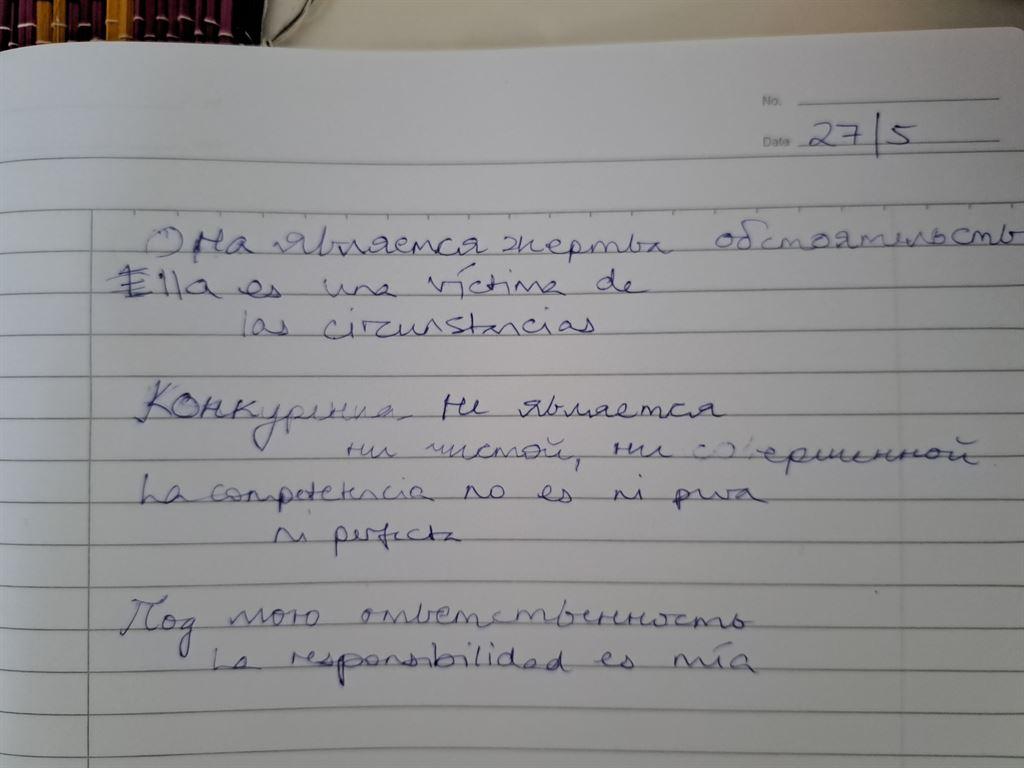 No.
Date 27/5
Она является жертва обстоятельость
Ella es una víctima de
las circunstancias
Конкуренция не является
ни чистой, ни совершенной
La competencia no es ni pura
ni perfecta
Под мою ответственность
La responsibilidad es mía